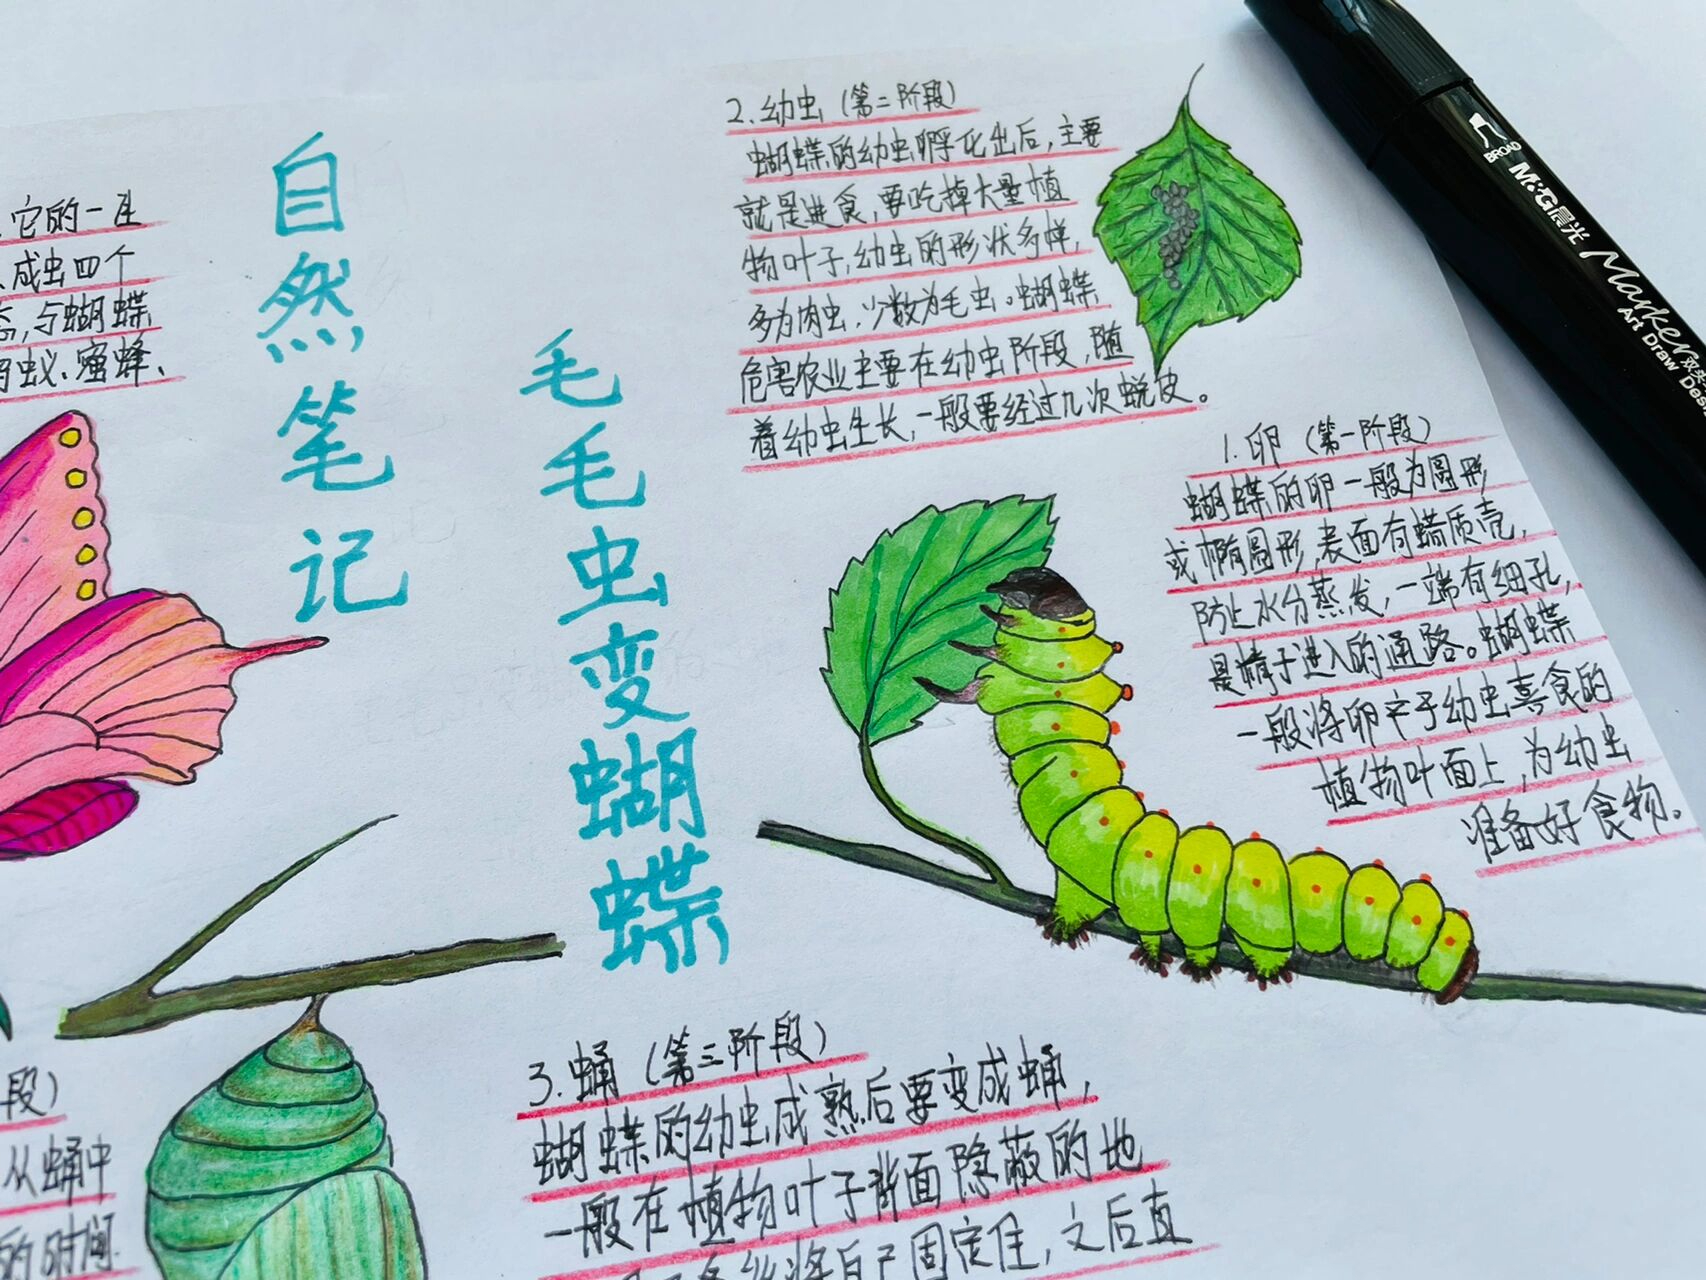 自然笔记
毛毛虫变蝴蝶
它的一生
成虫四个
态,与蝴蝶
蚂蚁、蜜蜂、
2.幼虫(第二阶段)
蝴蝶的幼虫孵化出后,主要
就是进食,要吃掉大量植
物叶子,幼虫的形状多样,
多为肉虫,少数为毛虫。蝴蝶
危害农业主要在幼虫阶段,随
着幼虫生长,一般要经过几次蜕皮。
1.卵(第一阶段)
蝴蝶的卵一般为圆形
或椭圆形,表面有蜡质壳,
防止水分蒸发,一端有细孔,
是精子进入的通路。蝴蝶
一般将卵产于幼虫喜食的
植物叶面上,为幼虫
准备好食物。
3.蛹(第三阶段)
蝴蝶的幼虫成熟后要变成蛹,
一般在植物叶子背面隐蔽的地
将自己固定住,之后直
段)
从蛹中
的时间
BROAD
M&G晨光
Marker
Art Draw Des
双头